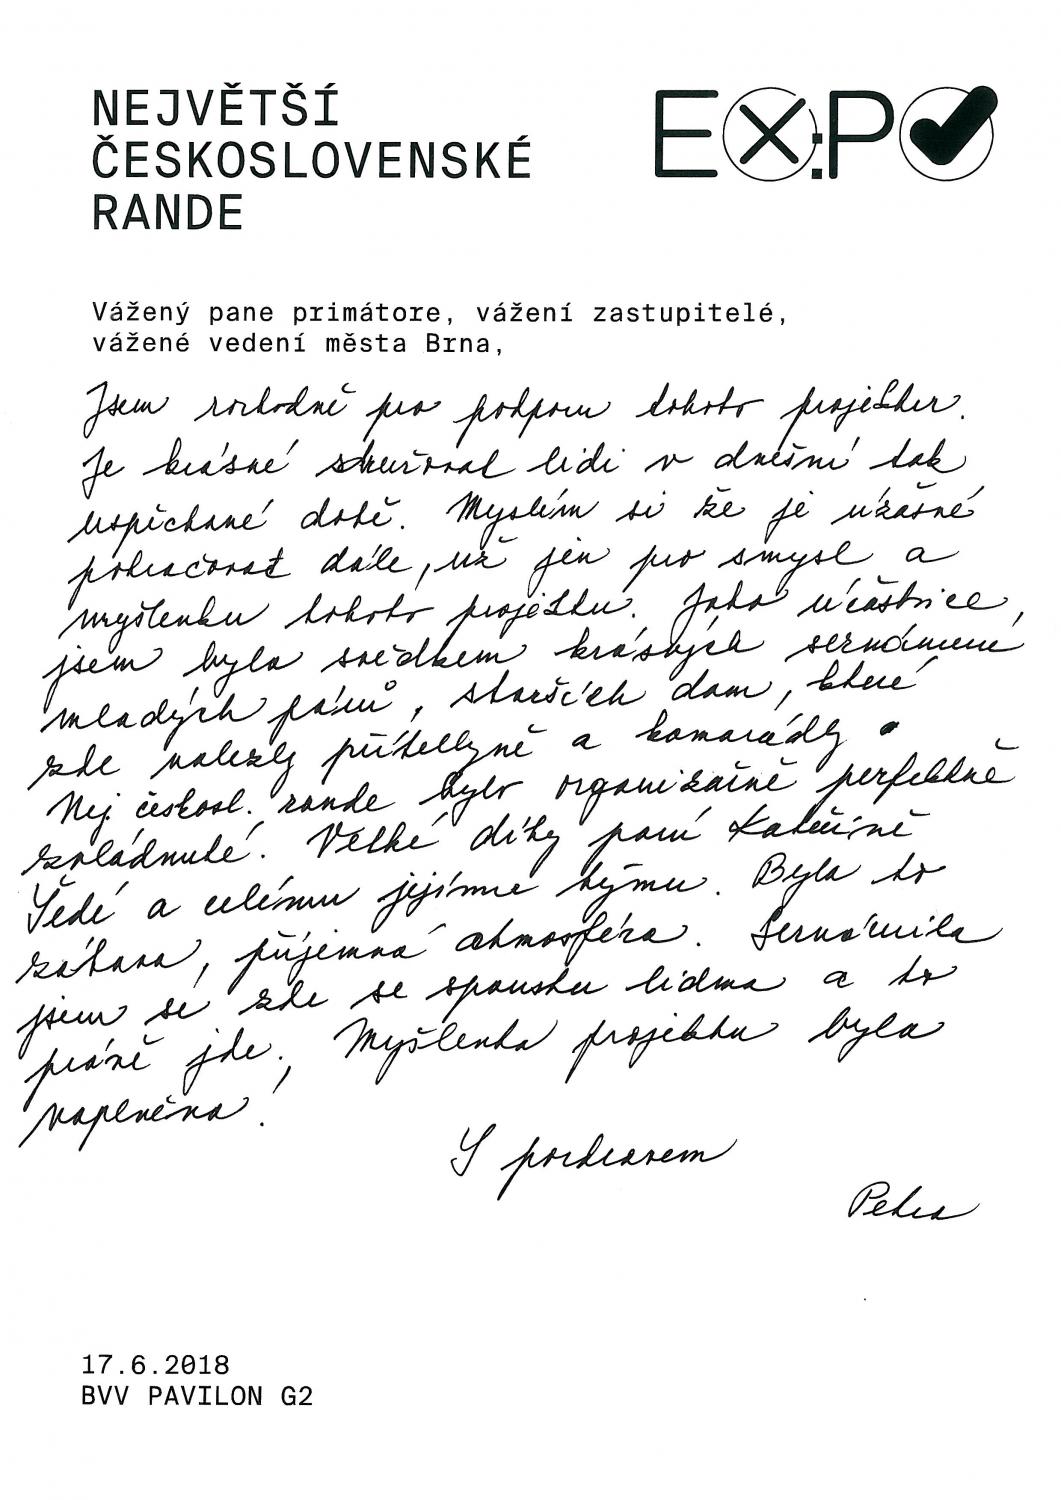 NEJVĚTŠÍ
ČESKOSLOVENSKÉ
RANDE
EX:PO
Vážený pane primátore, vážení zastupitelé,
vážené vedení města Brna,
Jsem rozhodně pro podporu tohoto projektu.
Je krásné sdružovat lidi v dnešní tak
uspěchané době. Myslím si že je úžasné
pokračovat dále, už jen pro smysl a
myšlenku tohoto projektu. Jako účastnice,
jsem byla svědkem krásných seznámení
mladých párů, starších dam, které
zde nalezly přítelkyně a kamarádky.
Nej českosl. rande bylo organizačně perfektně
zvládnuté. Velké díky paní Kateřině
Šedé a celému jejímu týmu. Byla to
zábava, příjemná atmosféra. Seznámila
jsem se zde se spoustu lidma a to
právě jde, Myšlenka projektu byla
naplněna!
S pozdravem
Petra
17.6.2018
BVV PAVILON G2